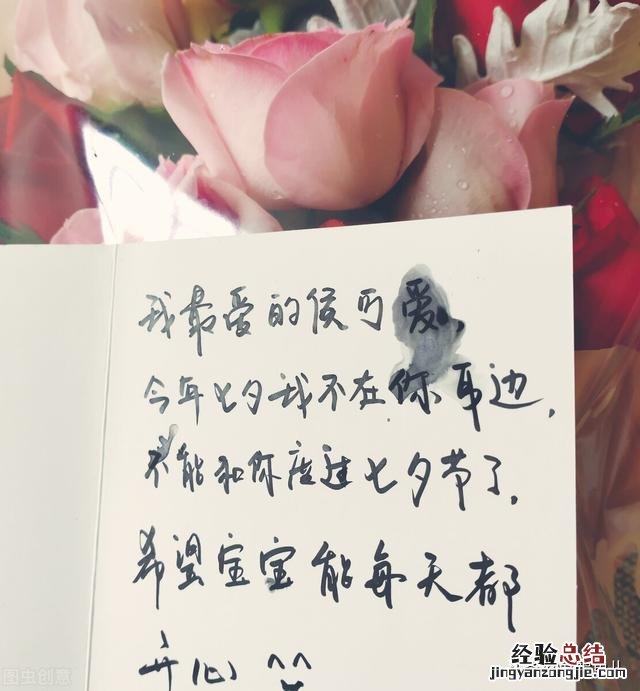 我最爱的侯可爱,
今年七夕我不在你耳边,
不能和你度过七夕节了.
希望宝宝能每天都
开心 ^^
图虫创意
经验总结
jingyanzongjie.com